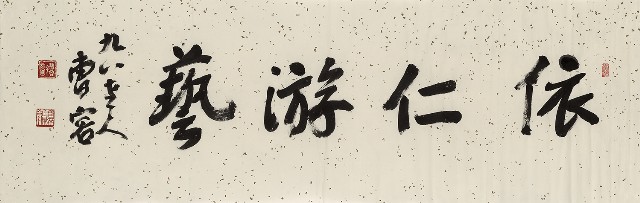 依仁游藝
九八老人
曹容